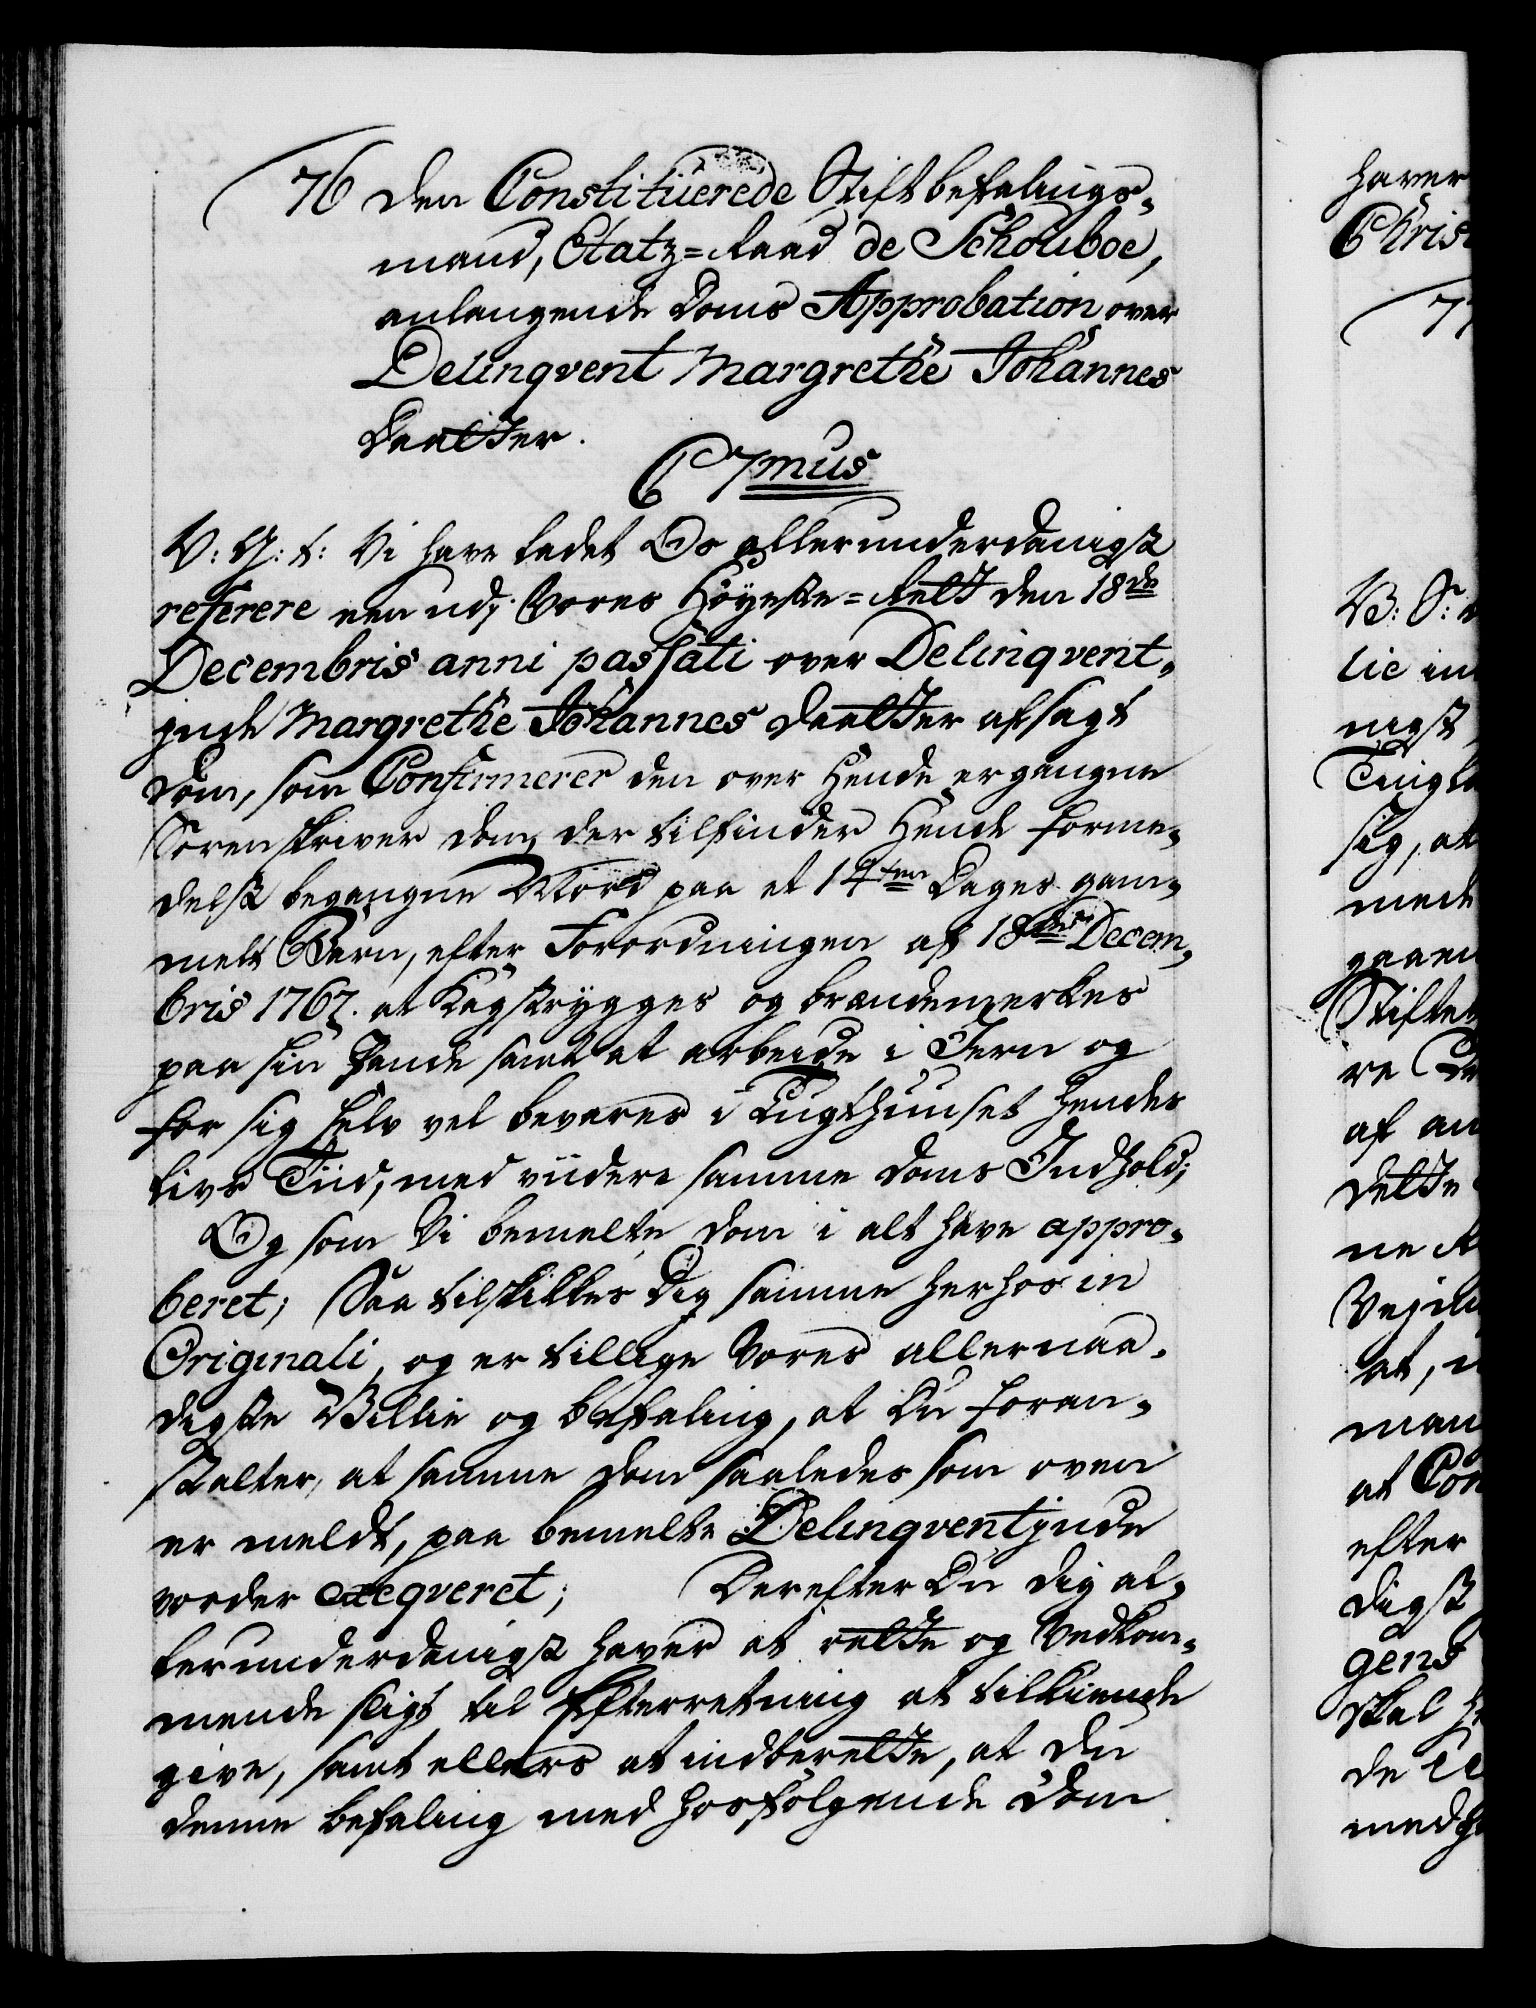 76 Den Constituerede Stiftbefalings-
mand, Etatz=Raad de Schouboe,
anlangende Doms Approbation over
Delinqvent Margrethe Johannes
Daatter.
C 7mus
V: G: t: Vi have ladet Os allerunderdanigst
referere een ud: Vores Höyeste=Rett den 18de
Decembris anni passati over Delinqvent-
inde Margrethe Johannes Daatter afsagt
Dom, som Confirmerer den over Hende ergangne
Sorenskriver Dom, der tilfinder Hende forme-
delst begangne Mord paa et 14ten Dages gam-
melt Barn, efter Forordningen af 18de Decem-
bris 1767. at Kagstrygges og brændemerkes
paa sin Pande samt at arbeide i Jern og
for sig selv vel bevares i Tugthuuset Hendes
Livs Tiid, med viidere samme Doms Indhold;
Og som Vi bemelte Dom i alt have appro-
beret; Saa tilskikkes Dig samme herhos in
Originali, og er tillige Vores allernaa-
digste Villie og Befaling, at Du foran-
stalter, at samme Dom saaledes som oven
er meldt, paa bemelte Delinqventinde
vorder exeqveret; Derefter Du dig al-
lerunderdanigst haver at rette og Vedkom-
mende sligt til Efterretning at tilkiende
give, samt ellers at indberette, at Du
denne Befaling med hosfölgende Dom
haver
Chris
77
V: G:
lie in
nigst
Tingla
sig, at
mede
gaaen
Stifte
re
af an
dette
ne
Vejni
at,
man
at Con
efter
digst
gens
skal
de
med